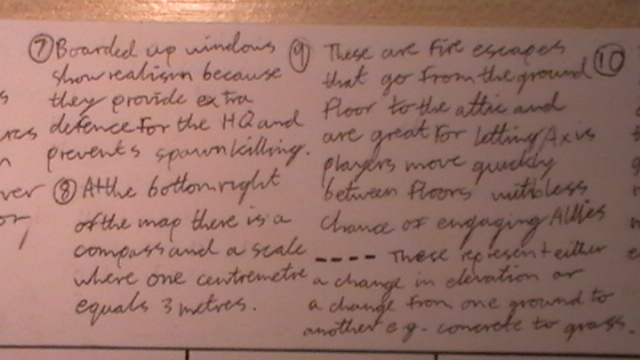 ⑦ Boarded up windows
show realism because
they provide extra
defence for the HQ and
prevents spawnkilling.
⑧ At the bottom right
of the map there is a
compass and a scale
where one centremetre
equals 3 metres.
⑨ These are fire escapes
that go from the ground
floor to the attic and
are great for letting Axis
players move quickly
between floors with less
chance of engaging Allies
---- These represent either
a change in elevation or
a change from one ground to
another e.g. concrete to grass.
⑩